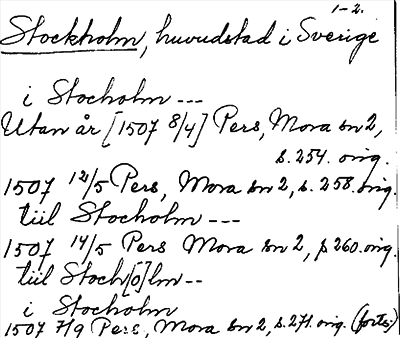 1-2.
Stockholm, huvudstad i Sverige
i Stocholm ---
Utan år [1507 8/4] Pers, Mora sn 2,
s. 254. orig.
1507 12/5 Pers, Mora sn 2, s. 258. orig.
tiil Stocholm ---
1507 14/5 Pers Mora sn 2, p 260. orig.
tiil Stoch[o]lm --
i Stocholm
1507 7/9 Pers, Mora sn 2, s. 271. orig. (forts.)